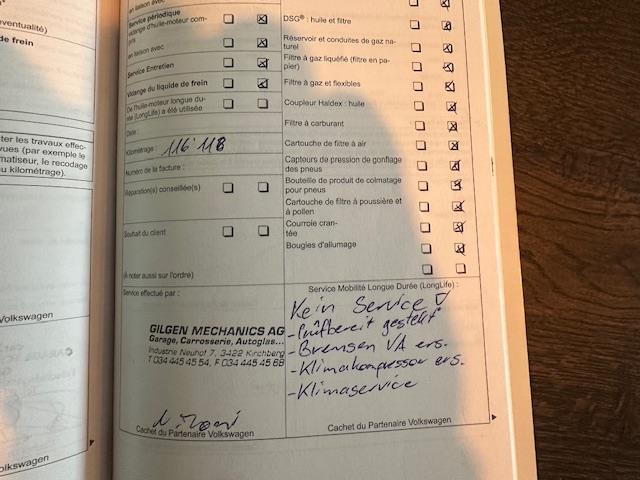 éventualité)
de frein
ter les travaux effec-
vues (par exemple le
matiseur, le recodage
u kilométrage).
Volkswagen
olkswagen
en liaison avec
Service périodique
vidange d'huile-moteur com-
pris
en liaison avec
Service Entretien
Vidange du liquide de frein
De l'huile-moteur longue du-
rée (LongLife) a été utilisée
Date :
Kilométrage : 116'118
Numéro de la facture :
Réparation(s) conseillée(s)
Souhait du client
(À noter aussi sur l'ordre)
DSG® : huile et filtre
Réservoir et conduites de gaz na-
turel
Filtre à gaz liquéfié (filtre en pa-
pier)
Filtre à gaz et flexibles
Coupleur Haldex : huile
Filtre à carburant
Cartouche de filtre à air
Capteurs de pression de gonflage
des pneus
Bouteille de produit de colmatage
pour pneus
Cartouche de filtre à poussière et
à pollen
Courroie cran-
tée
Bougies d'allumage
Service effectué par :
GILGEN MECHANICS AG
Garage, Carrosserie, Autoglas...
Industrie Neuhof 7, 3422 Kirchberg
T 034 445 45 54, F 034 445 45 68
Cachet du Partenaire Volkswagen
Service Mobilité Longue Durée (LongLife) :
Kein Service
- Prüfbereit gestellt
- Bremsen VA ers.
- Klimakompressor ers.
- Klimaservice
Cachet du Partenaire Volkswagen